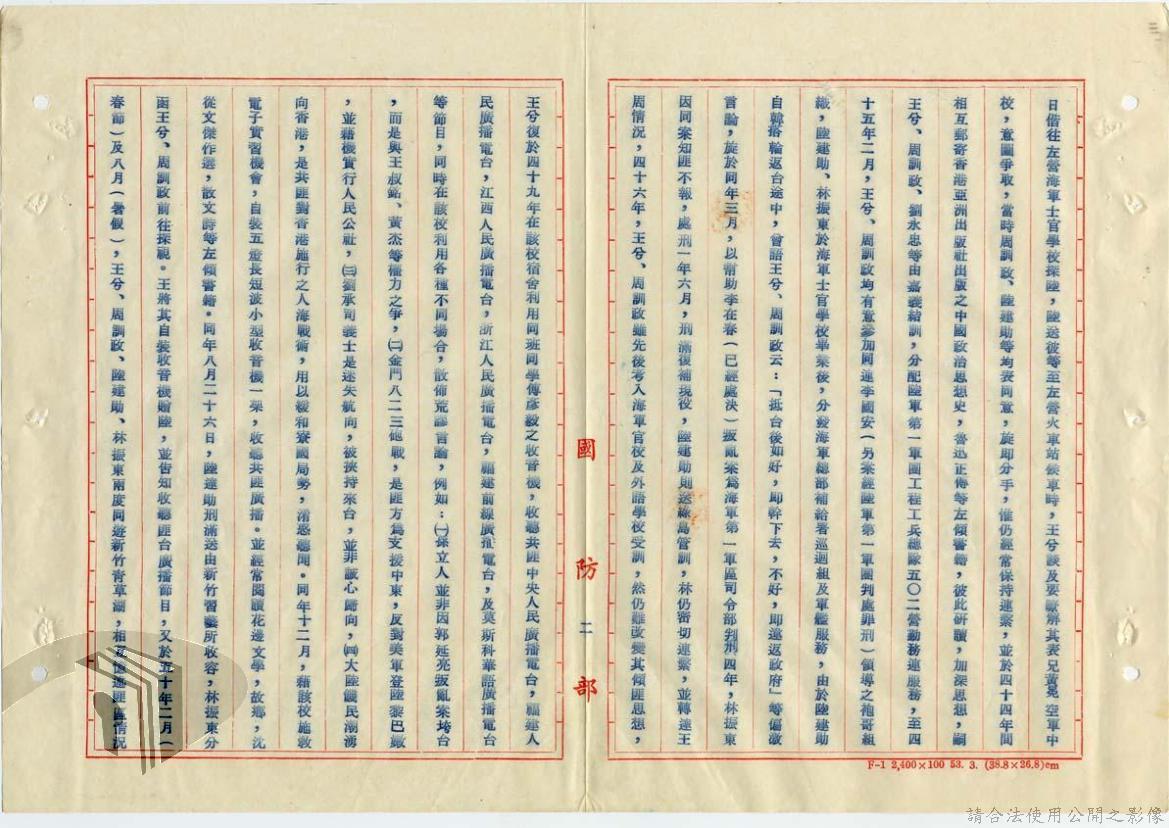 日偕往左營海軍士官學校探陸，陸送彼等至左營火車站候車時，王兮談及要瞭解其表兄黃冕空軍中
校，意圖爭取，當時周訓政、陸建勛等均表同意，旋即分手，惟仍經常保持連繫，並於四十四年間
相互郵寄香港亞洲出版社出版之中國政治思想史，魯迅正傳等左傾書籍，彼此研讀，加深思想，嗣
王兮、周訓政、劉永忠等由嘉義結訓，分配陸軍第一軍團工程工兵總隊五〇二營勤務連服務，至四
十五年二月，王兮、周訓政均有意參加同連李國安（另案經陸軍第一軍團判處罪刑）領導之袍哥組
織，陸建勛、林振東於海軍士官學校畢業後，分發海軍總部補給署巡迴組及軍艦服務，由於陸建勛
自韓搭輪返台途中，曾語王兮、周訓政云：「抵台後如好，即幹下去，不好，即遠返政府」等偏激
言論，旋於同年三月，以幫助李在春（已經處決）叛亂案為海軍第一軍區司令部判刑四年，林振東
因同案知匪不報，處刑一年六月，刑滿復補現役，陸建勛則送綠島管訓，林仍密切連繫，並轉達王
周情況，四十六年，王兮、周訓政雖先後考入海軍官校及外語學校受訓，然仍難改變其傾匪思想，
王兮復於四十九年在該校宿舍利用同班同學傅彥毅之收音機，收聽共匪中央人民廣播電台，福建人
民廣播電台，江西人民廣播電台，浙江人民廣播電台，福建前線廣播電台，及莫斯科華語廣播電台
等節目，同時在該校利用各種不同場合，散佈荒謬言論，例如：㈠孫立人並非因郭廷亮叛亂案垮台
，而是與王叔銘、黃杰等權力之爭，㈡金門八二三砲戰，是匪方為支援中東，反對美軍登陸黎巴嫩
，並藉機實行人民公社，㈢劉承司義士是迷失航向，被挾持來台，並非誠心歸向，㈣大陸饑民潮湧
向香港，是共匪對香港施行之人海戰術，用以緩和寮國局勢，淆惑聽聞。同年十二月，藉該校施教
電子實習機會，自裝五燈長短波小型收音機一架，收聽共匪廣播。並經常閱讀花邊文學，故鄉，沈
從文傑作選，散文詩等左傾書籍。同年八月二十六日，陸建勛刑滿送由新竹習藝所收容，林振東分
函王兮、周訓政前往探視。王將其自裝收音機贈陸，並告知收聽匪台廣播節目，又於五十年二月（
春節）及八月（暑假），王兮、周訓政、陸建勛、林振東兩度同遊新竹青草湖，相互傳述匪區情況
國防部
二
F-1 2,400×100 53. 3. (38.8×26.8)cm
請合法使用公開之影像